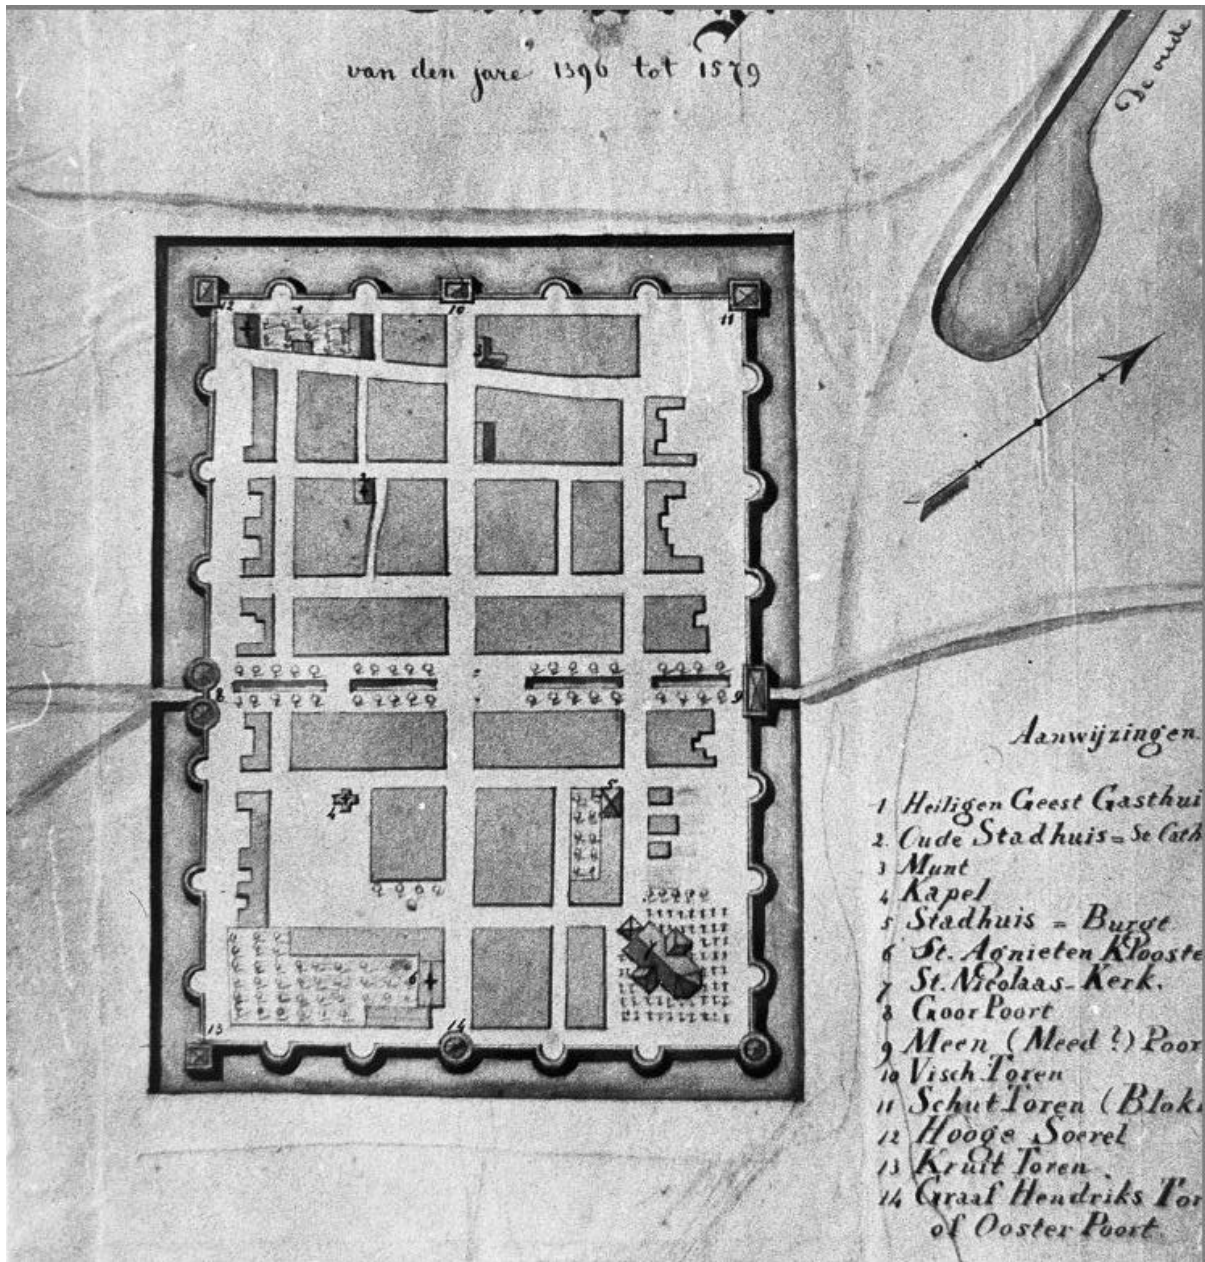 van den jare 1396 tot 1579
De oude
12
1
10
11
3
2
8
9
4
5
6
7
13
14
Aanwijzingen
1 Heiligen Geest Gasthui
2. Oude Stadhuis = St Cath
3 Munt
4 Kapel
5 Stadhuis = Burgt
6 St. Agnieten Klooste
7 St. Nicolaas-Kerk.
8 Goor Poort
9 Meen (Meed?) Poor
10 Visch Toren
11 Schut Toren (Blok
12 Hooge Soerel
13 Kruit Toren
14 Graaf Hendriks Tor
of Ooster Poort.